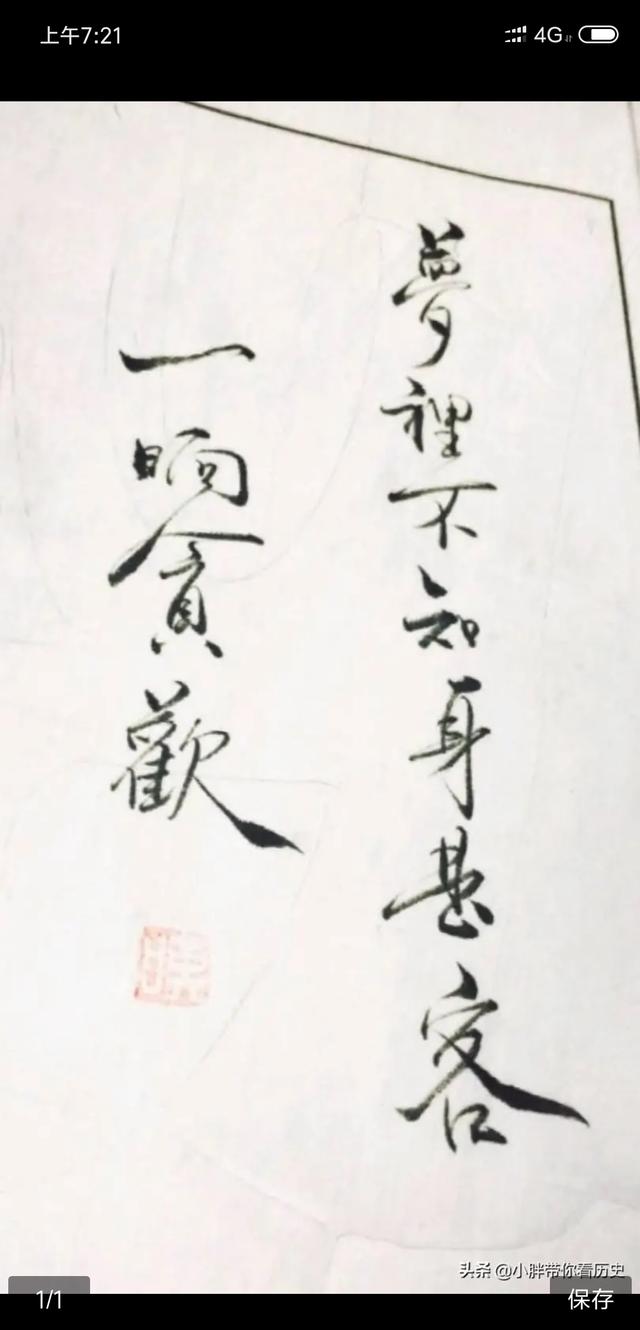 上午7:21
4G
夢裡不知身甚客
一晌貪歡
头条 @小胖带你看历史
1/1
保存